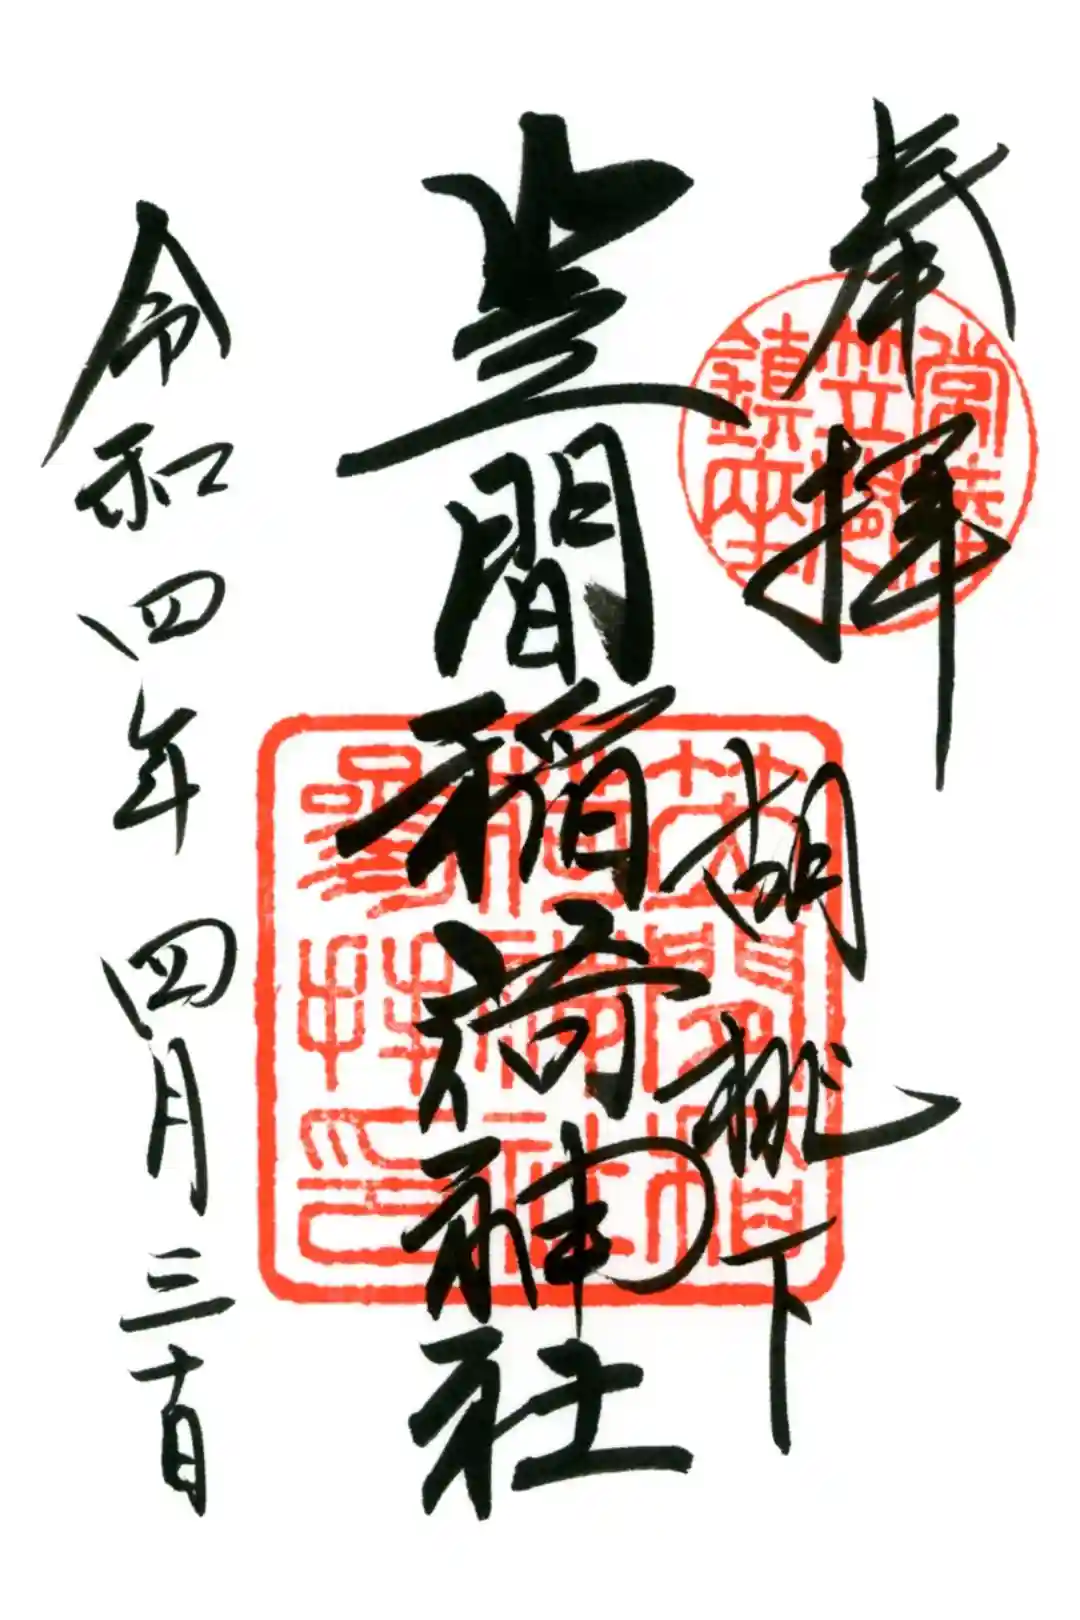 奉拝
胡桃下
笠間稲荷神社
令和四年四月三十日
常陸
笠間
鎮座
笠間稲
荷神社
参拝印